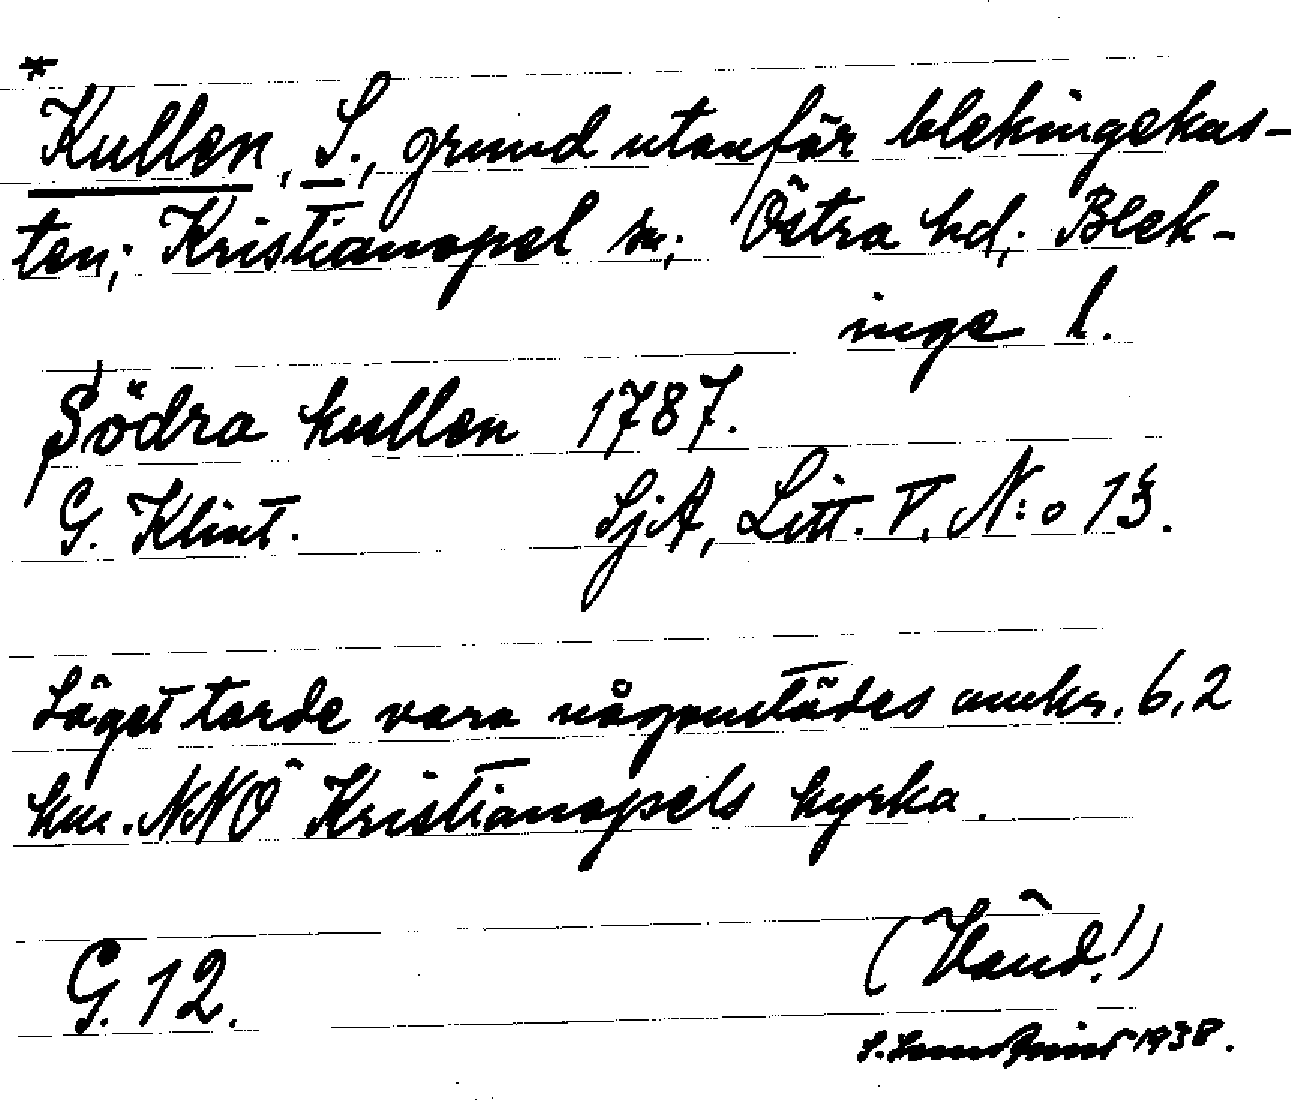 *
Kullen, S., grund utanför blekingekus-
ten; Kristianopel sn; Östra hd; Blek-
inge l.
Södra kullen 1787.
G. Klint. SjA, Litt. V. N:o 13.
Läget torde vara någonstädes omkr. 6,2
km. NNÖ Kristianopels kyrka.
G. 12. (Vänd!)
1938.